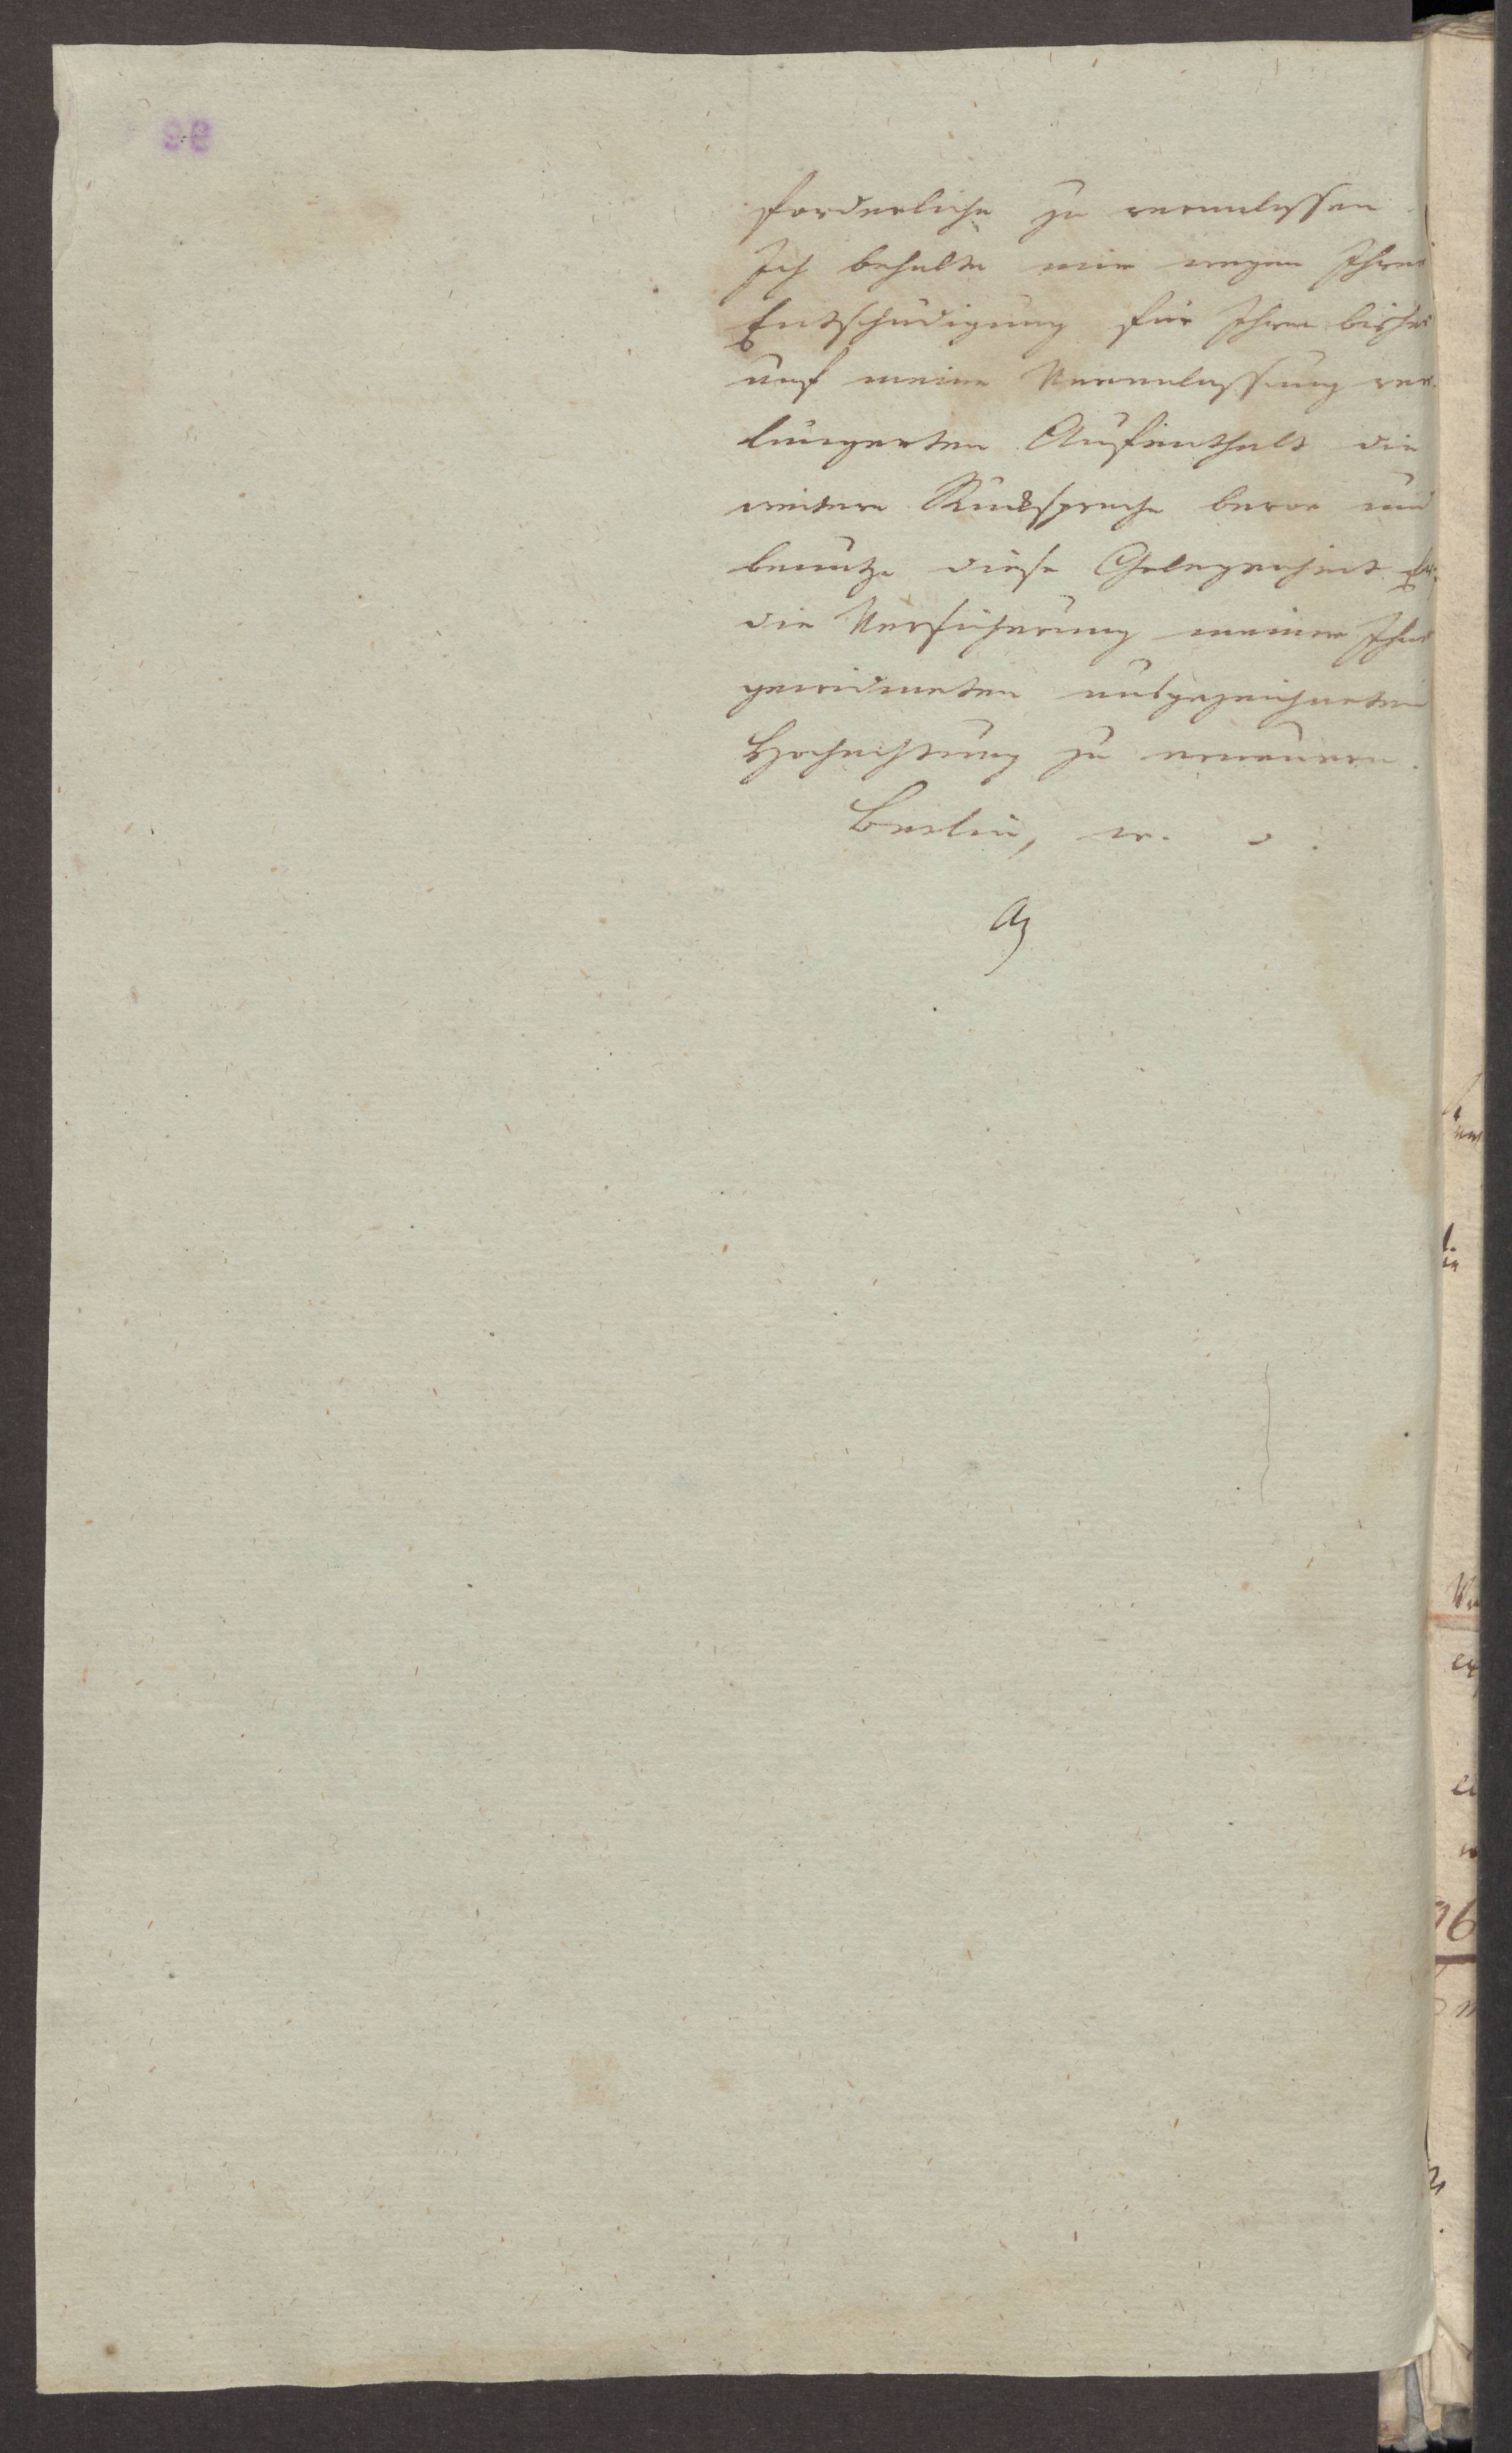 forderliche zu veranlassen
Ich behalte mir wegen Ihrer
Entschädigung für Ihren bisher
auf meine Veranlassung ver-
längerten Aufenthalt die
weitere Rücksprache bevor und
benutze diese Gelegenheit Ew.
die Versicherung meiner Ihnen
gewidmeten ausgezeichneten
Hochachtung zu erneuern.
Berlin,